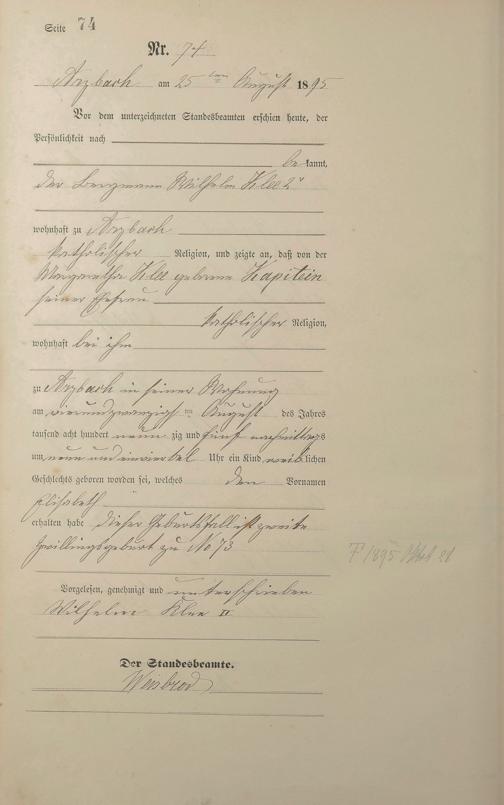 Seite 74
Nr. 74
Arzbach am 25ten August 1895
Vor dem unterzeichneten Standesbeamten erschien heute, der
Persönlichkeit nach
bekannt,
der Bergmann Wilhelm Klee 2r
wohnhaft zu Arzbach
katholischer Religion, und zeigte an, daß von der
Margaretha Klee geborene Kapitein
seiner Ehefrau
katholischer Religion,
wohnhaft bei ihm
zu Arzbach in seiner Wohnung
am vierundzwanzigsten August des Jahres
tausend acht hundert neunzig und fünf nachmittags
um neun und einviertel Uhr ein Kind weiblichen
Geschlechts geboren worden sei, welches den Vornamen
Elisabeth
erhalten habe Dieser Geburtsfall ist zweite
Zwillingsgeburt zu No 73
F 1895 21
Vorgelesen, genehmigt und unterschrieben
Wilhelm Klee II
Der Standesbeamte.
Weisbrod